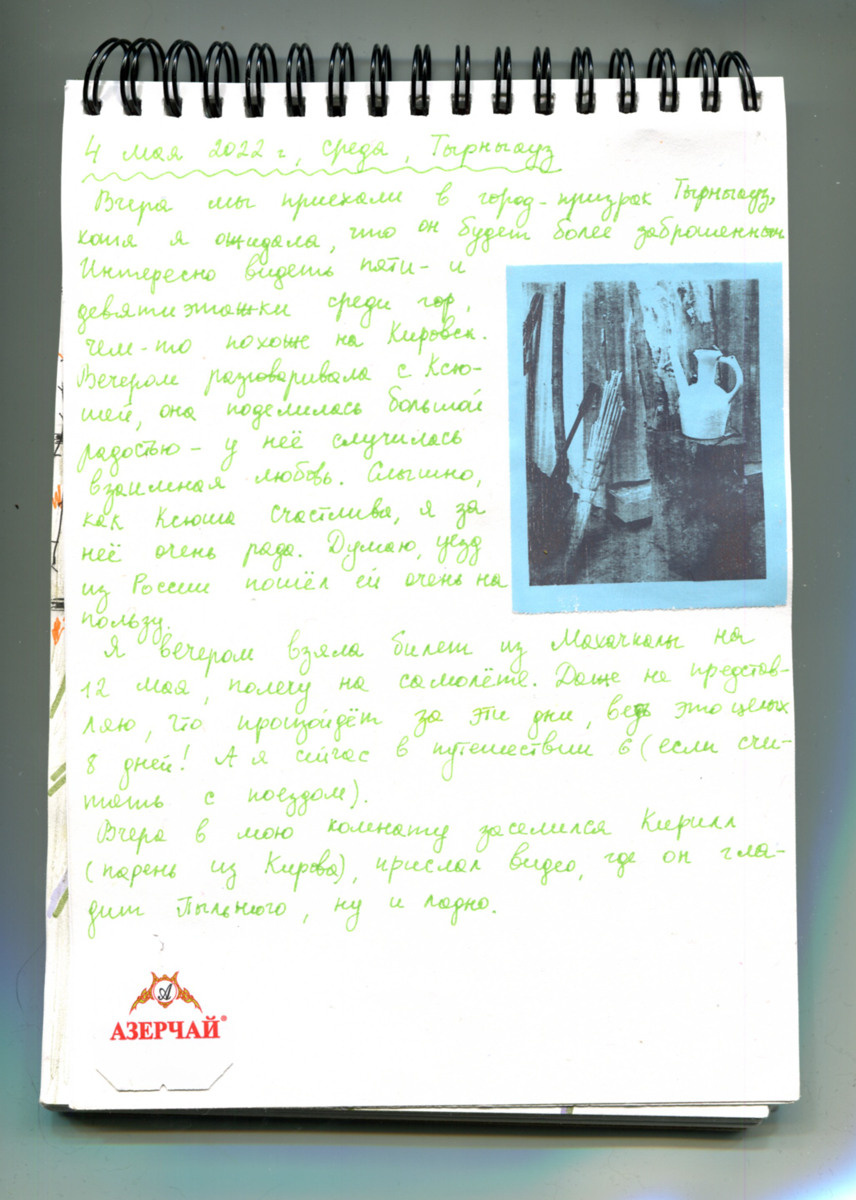 4 мая 2022 г, среда, Тырныауз
Вчера мы приехали в город-призрак Тырныауз,
хотя я ожидала, что он будет более заброшенным
Интересно видеть пяти- и
девятиэтажки среди гор,
чем-то похоже на Кировск.
Вечером разговаривала с Ксю-
шей, она поделилась большой
радостью - у неё случилась
взаимная любовь. Слышно,
как Ксюша счастлива, я за
неё очень рада. Думаю, уезд
из России пошёл ей очень на
пользу.
Я вечером взяла билет из Махачкалы на
12 мая, полечу на самолёте. Даже не представ-
ляю, что произойдёт за эти дни, ведь это целых
8 дней! А я сейчас в путешествии 6 (если счи-
тать с поездом).
Вчера в мою комнату заселился Кирилл
(парень из Кирова), прислал видео, где он гла-
дит Пыльного, ну и ладно.
А
АЗЕРЧАЙ®